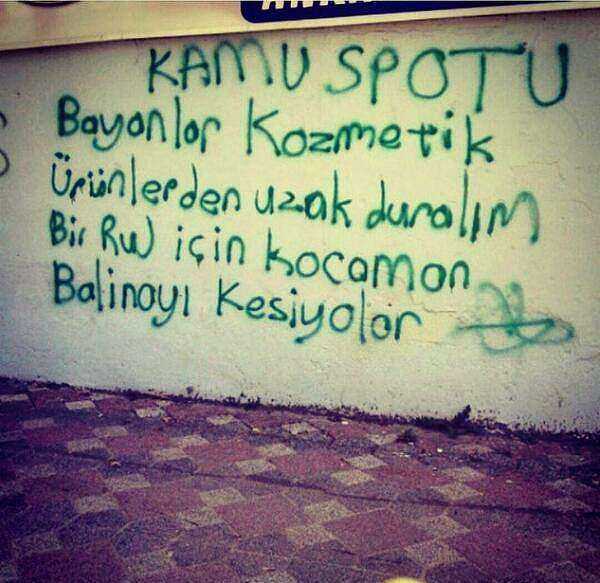 KAMU SPOTU
Bayanlar Kozmetik
Ürünlerden uzak duralım
Bir RUJ için kocaman
Balinayı Kesiyolar